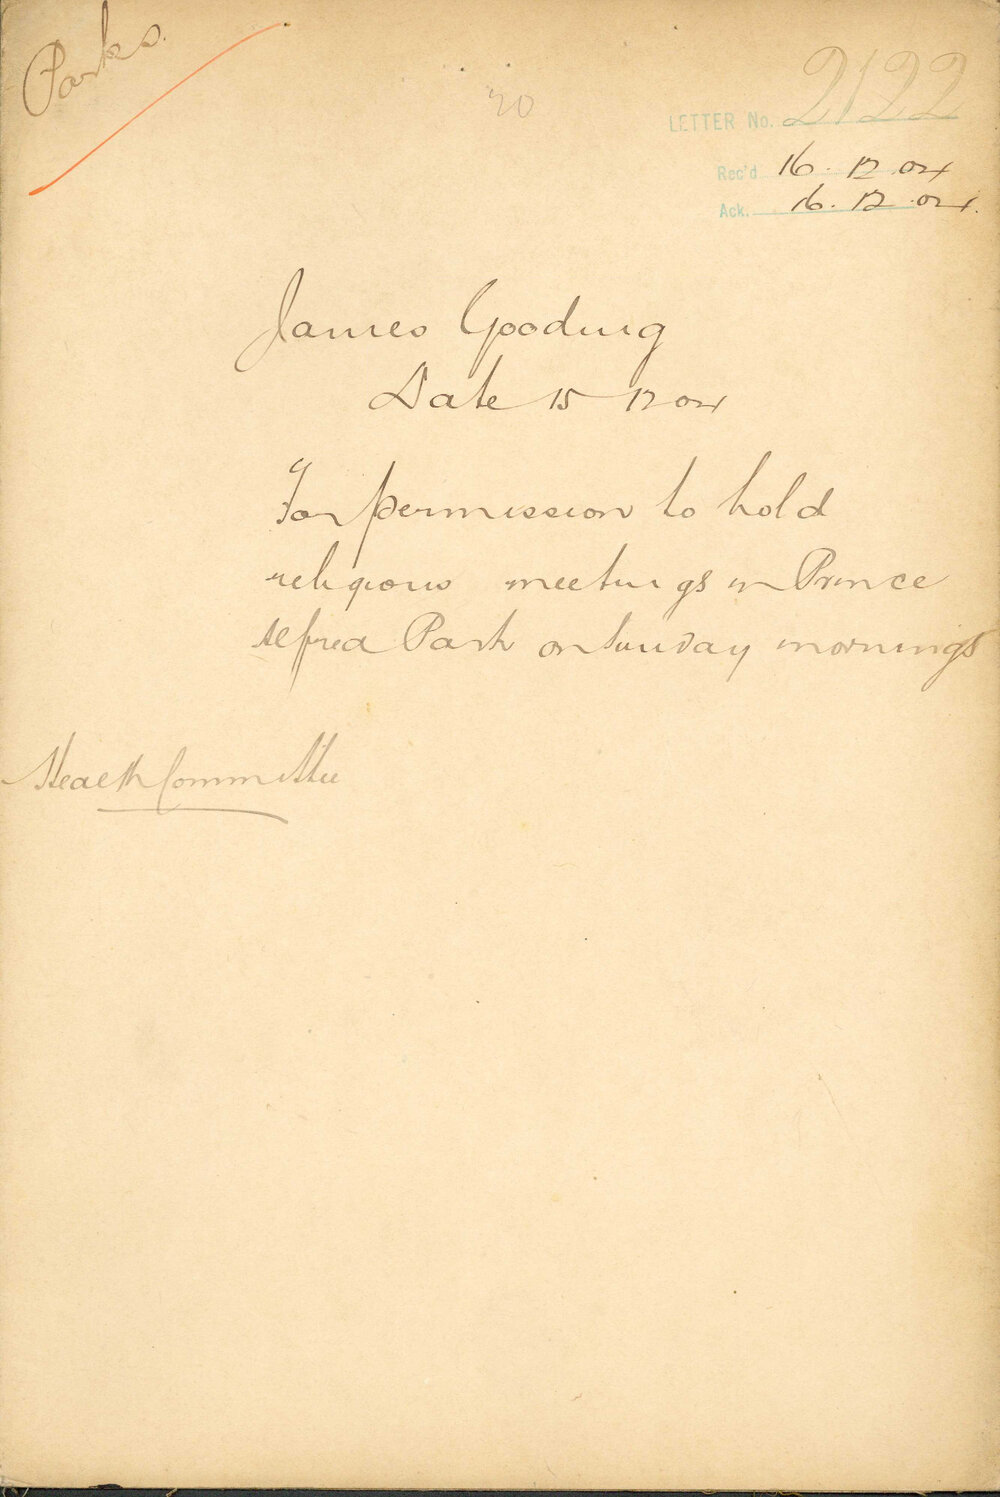 Parks.
20
LETTER No. 2122
Rec'd 16.12.04
Ack. 16.12.04.
James Gooding
Date 15 12 04
For permission to hold
religious meetings in Prince
Alfred Park on Sunday mornings
Health Committee